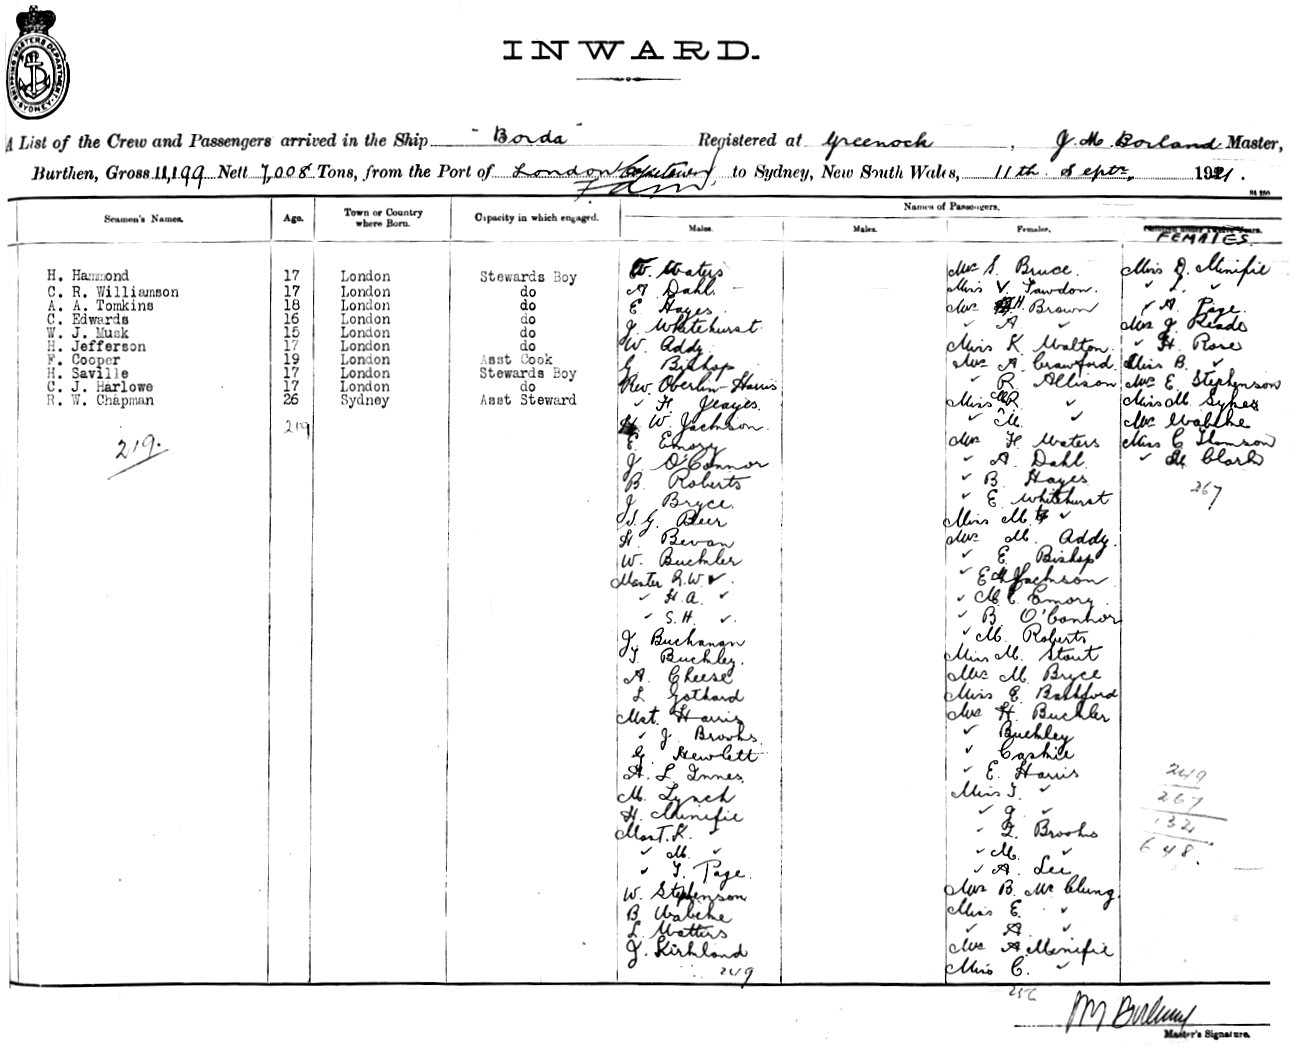 SHIPPING MASTERS DEPARTMENT SYDNEY
INWARD.
A List of the Crew and Passengers arrived in the Ship "Borda" Registered at Greenock, J M Borland Master,
Burthen, Gross 11,199 Nett 7,008 Tons, from the Port of London Capetown to Sydney, New South Wales, 11th Septr, 1921.
Seamen's Names. Age. Town or Country where Born. Capacity in which engaged. Names of Passengers.
Males. Males. Females. FEMALES
H. Hammond 17 London Stewards Boy
C. R. Williamson 17 London do
A. A. Tomkins 18 London do
C. Edwards 16 London do
W. J. Musk 15 London do
H. Jefferson 17 London do
F. Cooper 19 London Asst Cook
H. Saville 17 London Stewards Boy
C. J. Harlowe 17 London do
R. W. Chapman 26 Sydney Asst Steward
219
219.
W. Waters
A Dahl
E Hayes
J Whitehurst
W. Addy
G Bishop
Rev. Oberlin-Harris
✓ H Jeayes
W. Jackson
E Emory
J O'Connor
B Roberts
J Bryce
S. G. Beer
H Bevan
W. Buchler
Master G. W. ✓
✓ H. A. ✓
✓ S. H. ✓
J. Buchanan
T. Buckley
A. Cheese
L Gothard
Mast. Harris
✓ J Brooks
G Hewlett
A. L. Innes
M. Lynch
H. Minifie
Mast. K. ✓
✓ M. ✓
✓ T. Page
W. Stephenson
B Wabeke
L Watters
J. Kirkland
249
Mrs S. Bruce
Miss V. Tawdon
Mrs H Brown
✓ A ✓
Miss K Walton
Mrs A Crawford
✓ R. Allison
Miss R ✓
✓ M. ✓
Mrs H Waters
✓ A. Dahl
✓ B Hayes
✓ E Whitehurst
Miss M. ✓
Mrs M. Addy
✓ E Bishop
✓ E Jackson
✓ M. E Emory
✓ B. O'Connor
✓ M. Roberts
Miss M. Stout
Mrs M. Bryce
Miss E. Bashford
Mrs H Buchler
✓ Buckley
✓ Caskie
✓ E. Harris
Miss J. ✓
✓ G ✓
✓ Z Brooks
✓ M. ✓
✓ A. Lee
Mrs B. McClung
Miss E. ✓
✓ A ✓
Mrs A Minifie
Miss C. ✓
256
Miss D. Minifie
✓ J. ✓
✓ A. Page
Mrs J Reade
✓ H. Rose
Miss B. ✓
Mrs E. Stephenson
Miss M. Sykes
Mrs Wabeke
Miss C Thomson
✓ M. Clark
267
249
267
132
648.
J M Borland
Master's Signature.